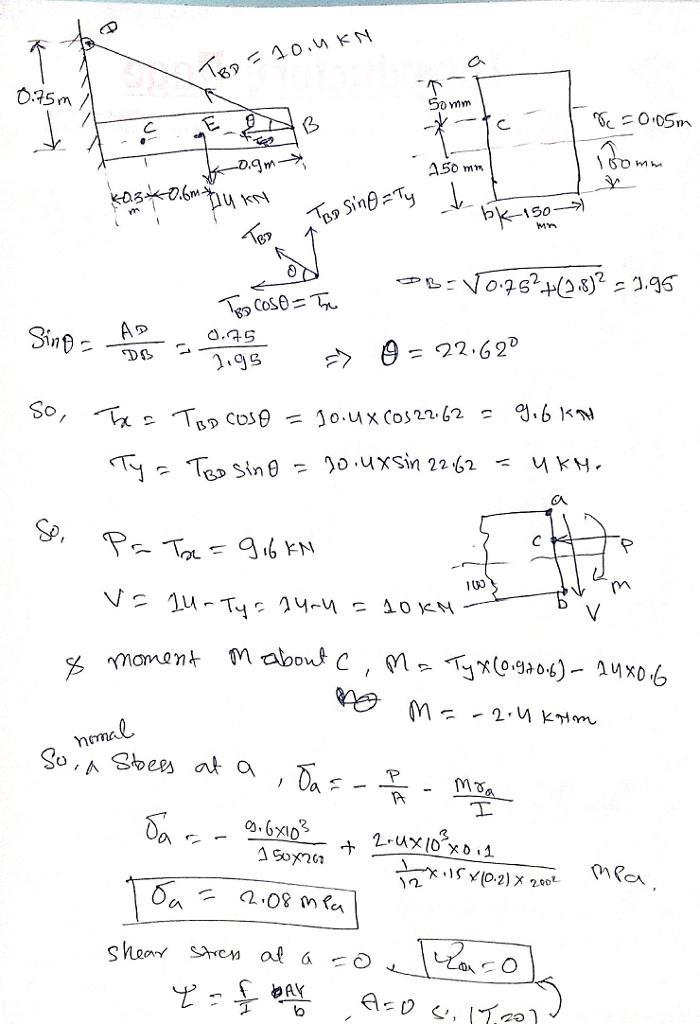 D
T_BD = 10.4 KN
0.75m
C E θ B
0.9m
0.3 m 0.6m 14 KN
a
50mm
C
150mm
b 150 mm
r_c = 0.05m
100 mm
T_BD T_BD sinθ = Ty
θ
T_BD cosθ = Tx
DB = √0.75²+(1.8)² = 1.95
Sinθ = AD/DB = 0.75/1.95 => θ = 22.62°
So, Tx = T_BD cosθ = 10.4 x cos 22.62 = 9.6 KN
Ty = T_BD sinθ = 10.4 x sin 22.62 = 4 KN.
So, P = Tx = 9.6 KN
V = 14 - Ty = 14 - 4 = 10 KN
a
C P
100 M
b V
& moment M about C, M = Ty x (0.9+0.6) - 14x0.6
M = -2.4 KNm
So, normal stress at a, σa = - P/A - M ra/I
σa = - 9.6x10³/150x200 + 2.4x10³x0.1/(1/12 x .15 x (0.2) x 200²) MPa.
σa = 2.08 MPa
shear stress at a = 0
τa = 0
τ = F/I AY/b, A=0 So,